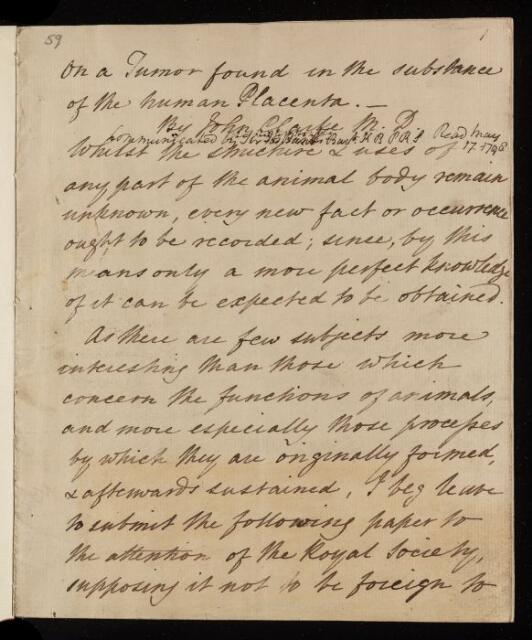 59
1
On a Tumor found in the substance
of the human Placenta. —
By John Clarke M. D.
Communicated by Sir Jos. Banks Bart. K B P R S Read May
17 1798
Whilst the structure & uses of
any part of the animal body remain
unknown, every new fact or occurrence
ought to be recorded; since, by this
means only a more perfect knowledge
of it can be expected to be obtained.
As there are few subjects more
interesting than those which
concern the functions of animals,
and more especially those processes
by which they are originally formed,
& afterwards sustained, I beg leave
to submit the following paper to
the attention of the Royal Society,
supposing it not to be foreign to